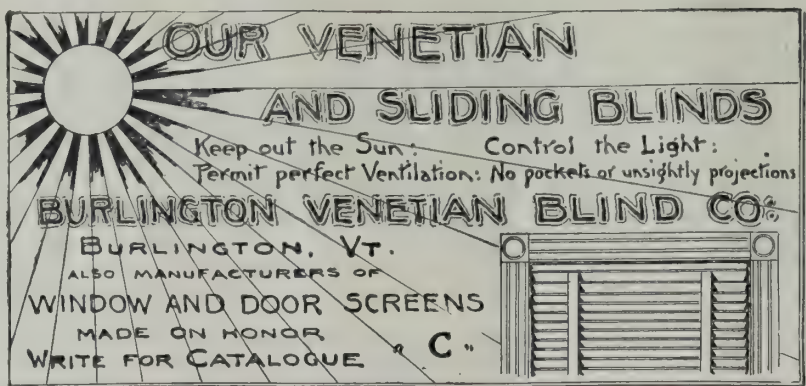 OUR VENETIAN
AND SLIDING BLINDS
Keep out the Sun: Control the Light:
Permit perfect Ventilation: No pockets or unsightly projections
BURLINGTON VENETIAN BLIND CO:
BURLINGTON, VT.
ALSO MANUFACTURERS OF
WINDOW AND DOOR SCREENS
MADE ON HONOR
WRITE FOR CATALOGUE "C"